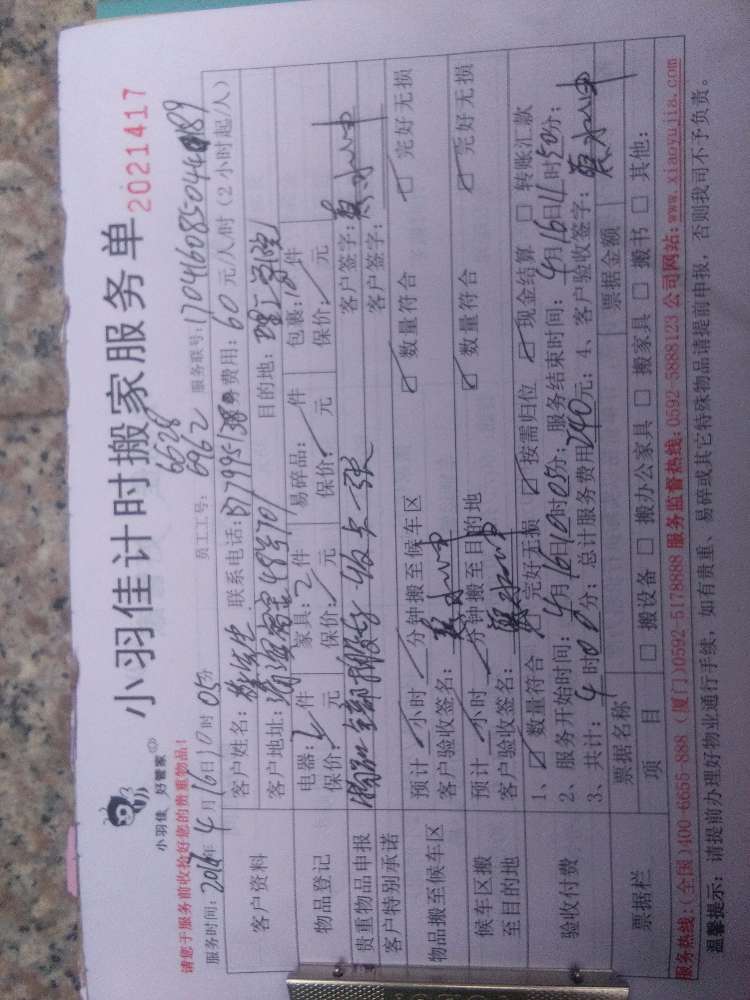 小羽佳 好管家
小羽佳计时搬家服务单
2021417
请您于服务前收拾好您的贵重物品!
6628
服务时间: 年4月16日10时05分 员工工号: 6962 服务联号:
客户资料
客户姓名: 先生 联系电话: 服务费用: 60元/人/时(2小时起/人)
客户地址: 目的地: 理工学院
物品登记
电器: 2件 家具: 2件 易碎品: 件 包裹: 件
保价: 元 保价: 元 保价: 元 保价: 元
贵重物品申报
客户签字:
客户特别承诺
客户签字:
物品搬至候车区
预计 小时 分钟搬至候车区 ☑ 数量符合 ☑ 完好无损
客户验收签名:
候车区搬至目的地
预计 小时 分钟搬至目的地 ☑ 数量符合 ☑ 完好无损
客户验收签名:
验收付费
1、☑ 数量符合 ☑ 完好无损 ☑ 按需归位 ☑ 现金结算 □ 转账汇款
2、服务开始时间: 4月16日10时05分; 服务结束时间: 4月16日 时50分;
3、共计: 4时 0分; 总计服务费用240元; 4、客户验收签字:
票据栏
票据名称 票据金额
项目 □ 搬设备 □ 搬办公家具 □ 搬家具 □ 搬书 □ 其他:
服务热线:(全国)400 6655-888 (厦门)0592 5178888 服务监督热线:0592-5888123 公司网站:www.xiaoyujia.com
温馨提示: 请提前办理好物业通行手续, 如有贵重、易碎或其它特殊物品请提前申报, 否则我司不予负责。